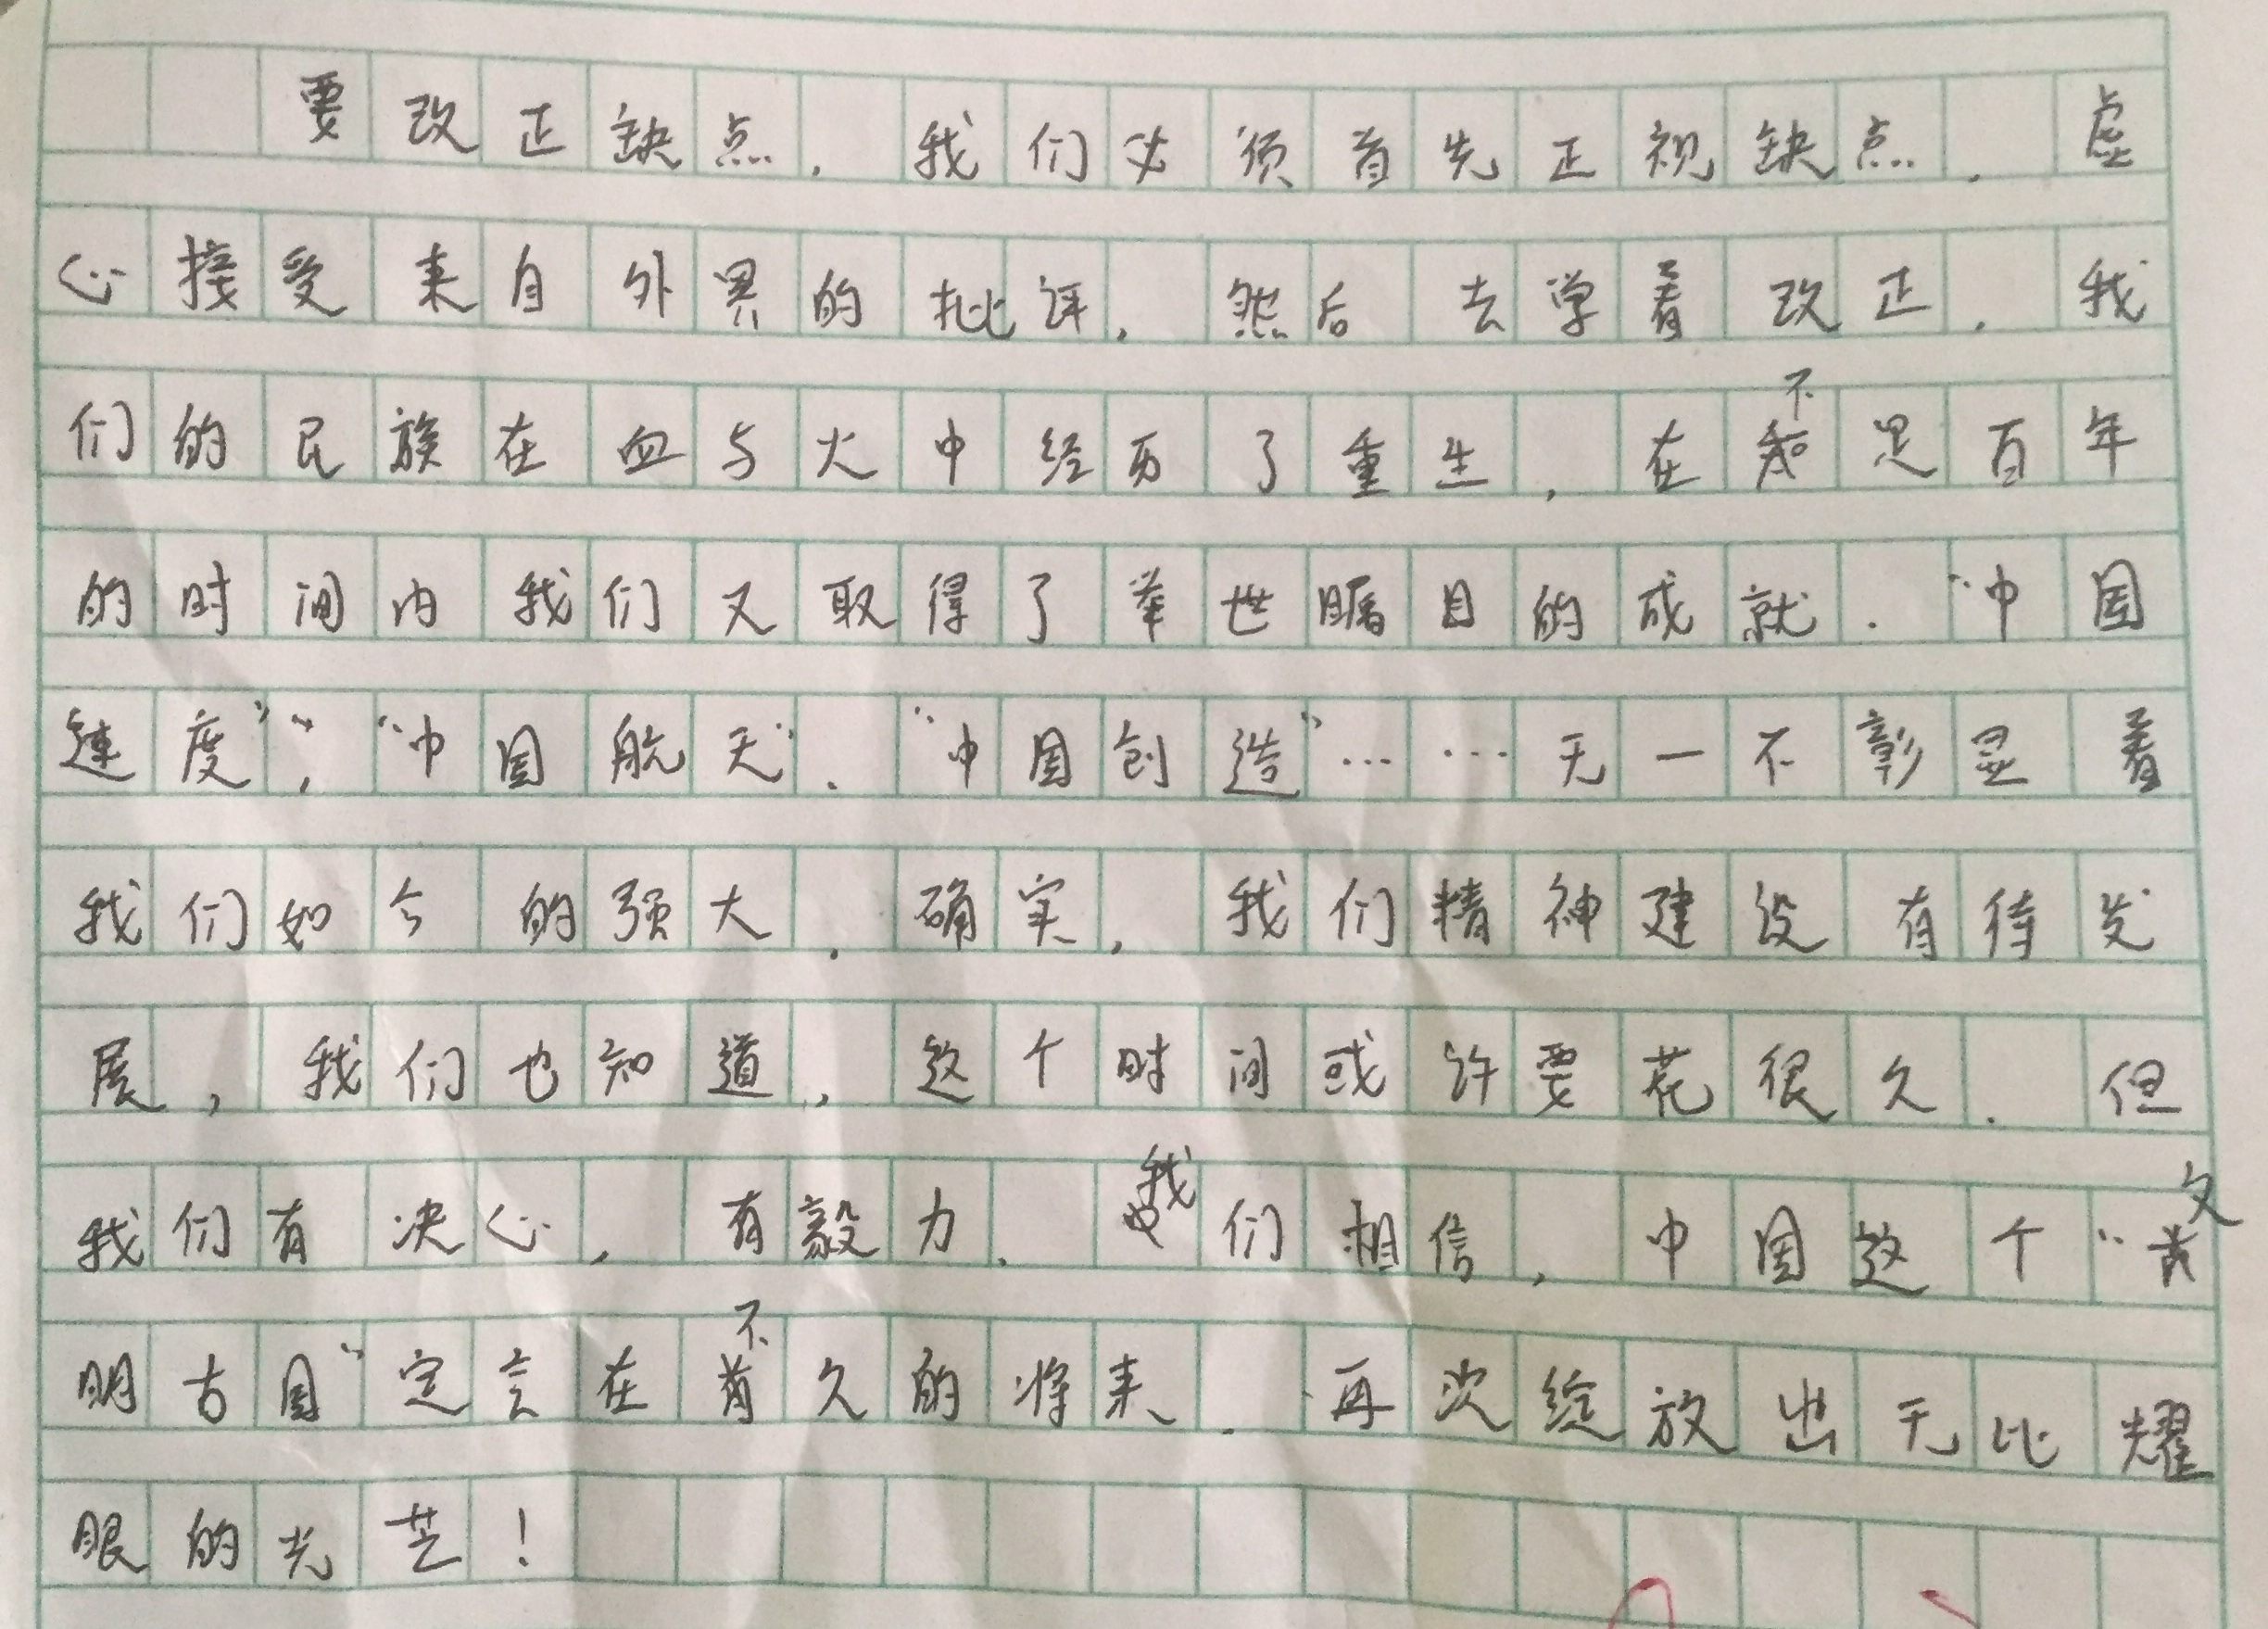 要改正缺点，我们必须首先正视缺点，虚
心接受来自外界的批评，然后去学着改正．我
们的民族在血与火中经历了重生，在不足百年
的时间内我们又取得了举世瞩目的成就．“中国
速度”，“中国航天”．“中国创造”……无一不彰显着
我们如今的强大．确实，我们精神建设有待发
展，我们也知道，这个时间或许要花很久．但
我们有决心，有毅力．我们相信，中国这个“文
明古国”定会在不久的将来，再次绽放出无比耀
眼的光芒！